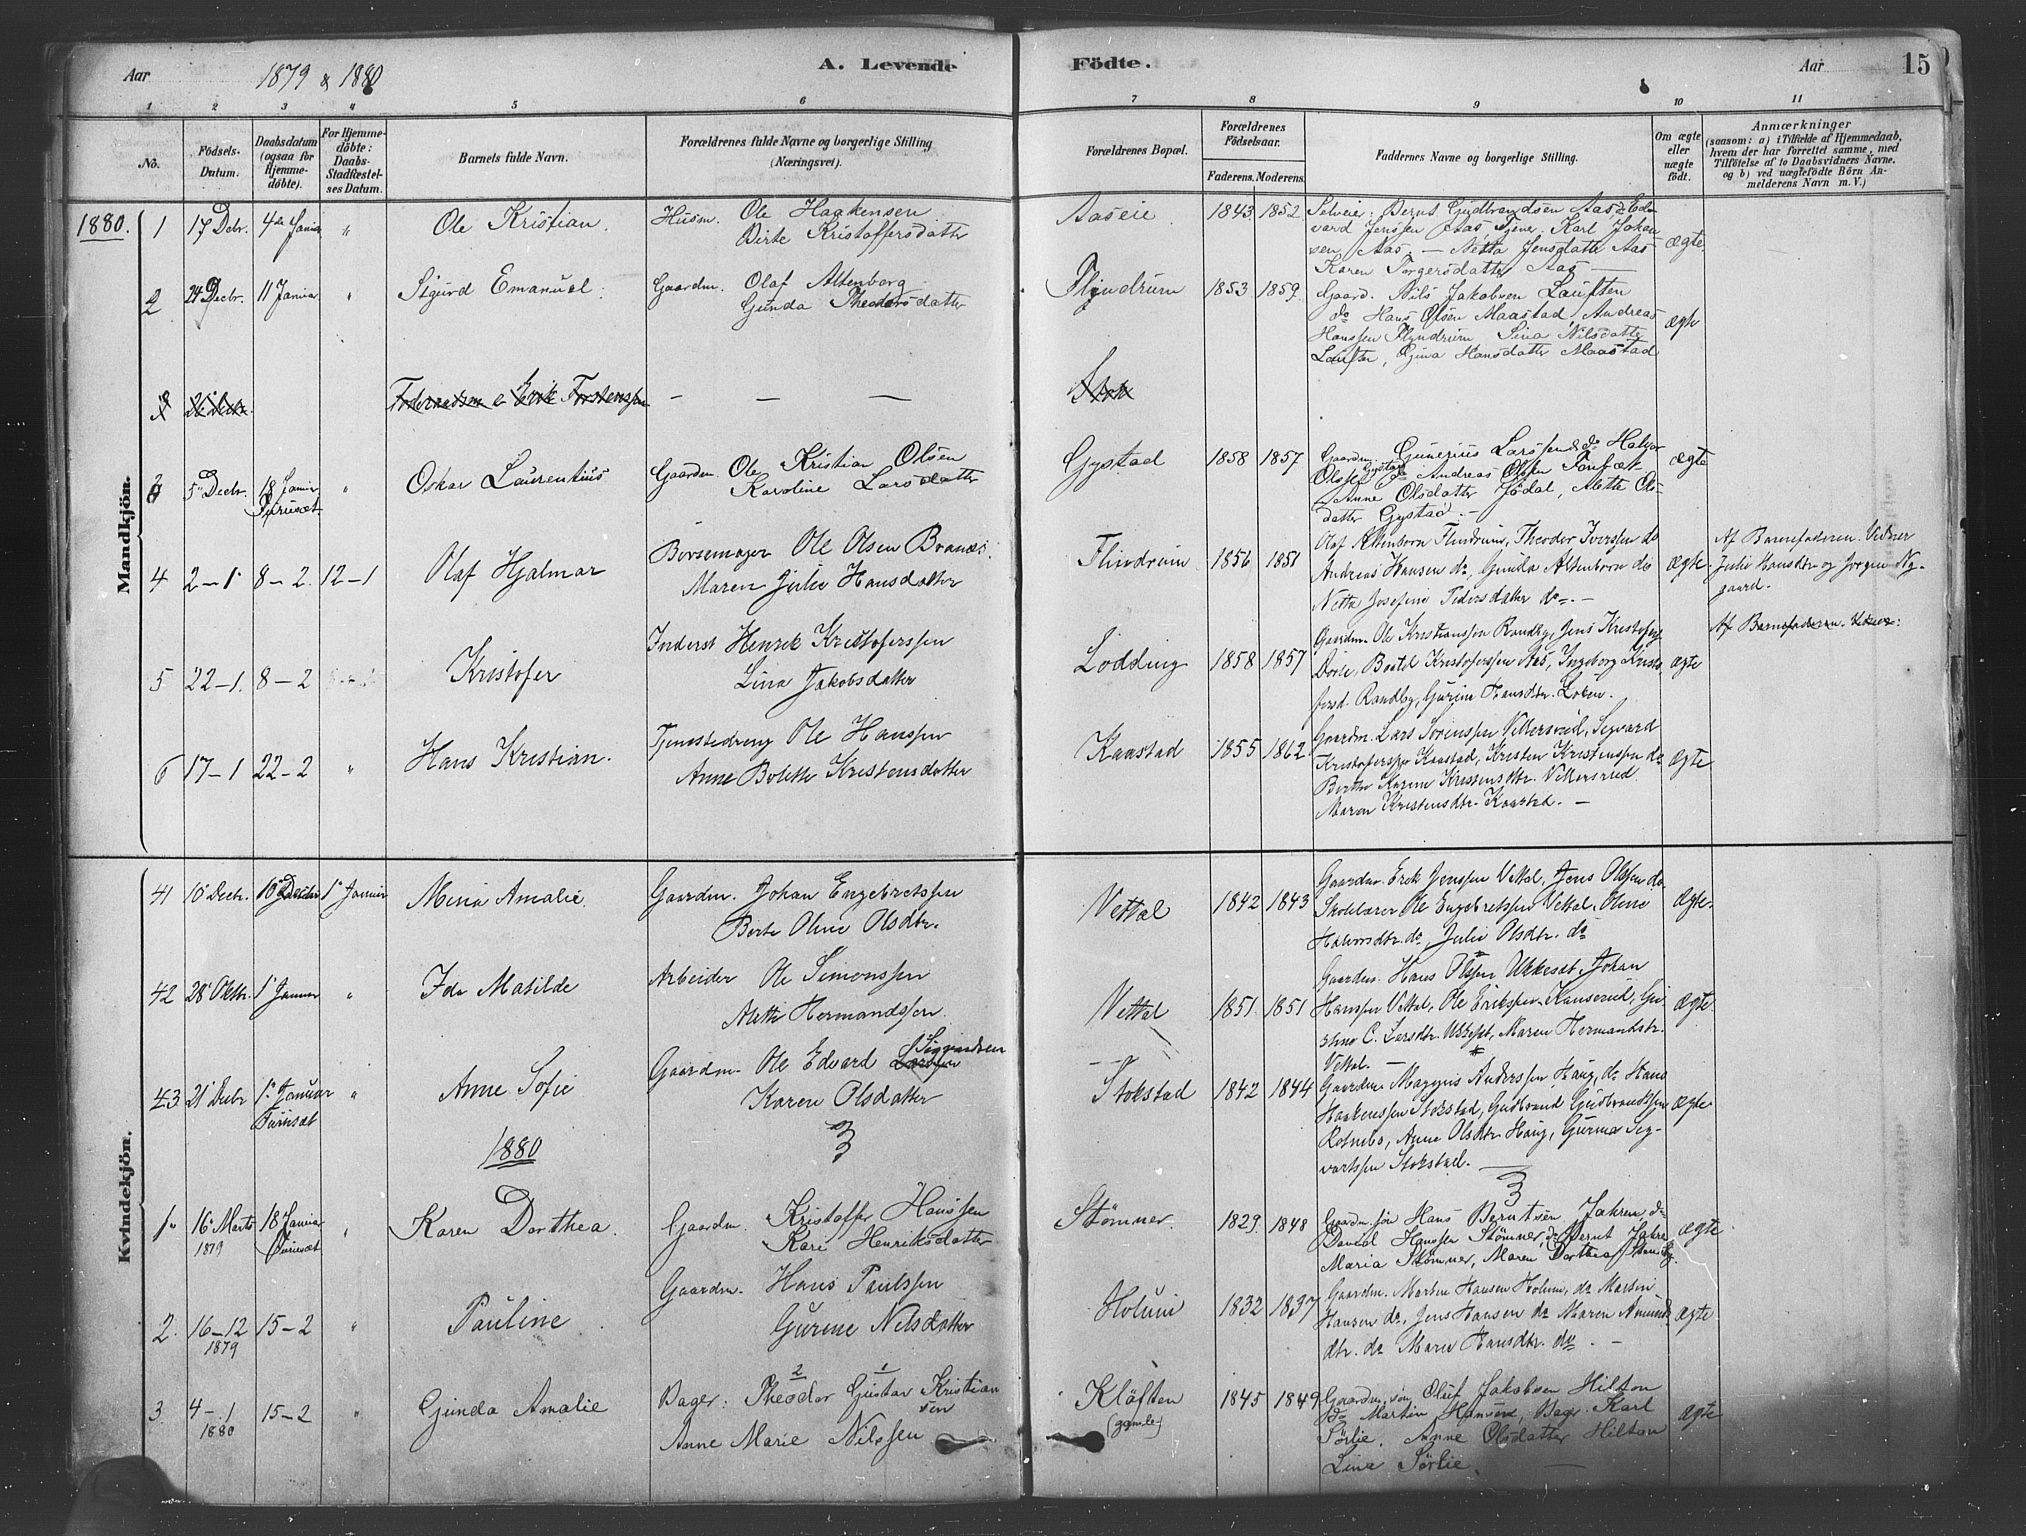 Aar 1879 & 1880 A. Levende Födte. Aar 15
1 2 3 4 5 6 7 8 9 10 11
No.
Födsels-Datum.
Daabsdatum (ogsaa for Hjemme-døbte).
For Hjemme-døbte: Daabs-Stadfæstel-ses Datum.
Barnets fulde Navn.
Forældrenes fulde Navne og borgerlige Stilling (Næringsvei).
Forældrenes Bopæl.
Forældrenes Födselsaar.
Faderens. Moderens.
Faddernes Navne og borgerlige Stilling.
Om ægte eller uægte født.
Anmærkninger
(saasom: a) i Tilfælde af Hjemmedaab, hvem der har forrettet samme, med Tilföielse af to Daabsvidners Navne, og b) ved uægtefødte Börn An-melderens Navn m. V.)
Mandkjön.
1880. 1 17 Decbr. 4de Januar " Ole Kristian. Husm. Ole Haakensen
Birte Kristoffersdatter
Aaseie 1843 1852
Selveier Bernt Gudbrandsen Aas Ed-
vard Jenssen Aas Tjener Karl Johan
sen Aas. — Netta Jensdatter Aas
Karen Torgersdatter Aas — ægte
2 24 Decbr. 11 Januar " Sigurd Emanuel. Gaardm. Olaf Altenborg
Gunda Theodorsdatter
Flyndrum 1853 1859
Gaard. Nils Jakobsen Lauften
do Hans Olsen Maastad Andreas
Hanssen Flyndrum Lina Nilsdatter
Lauften, Gina Hansdatter Maastad ægte
— — —
3 5 Decbr. 18 Januar Furuset " Oskar Laurentius Gaardm. Ole Kristian Olsen
Karoline Larsdatter
Gystad 1858 1857
Gaardm. Gunerius Larssen do Halvor
Olssen Gystad do Andreas Olsen
Anne Olsdatter Jödal, Alette Ols-
datter Gystad. — ægte
4 2-1 8-2. 12-1 Olaf Hjalmar Børsemager Ole Olsen Branæs.
Maren Julie Hansdatter
Flindrum 1856 1851
Olaf Altenborn Flindrum, Theodor Iverssen do
Andreas Hansen do, Gunda Altenborn do
Netta Josefine Pedersdatter do. — ægte
Af Barnefaderen. Vidner
Julie Hansdtr og Jørgen Ny-
gaard.
5 22-1. 8-2 Kristofer Inderst Henrik Kristoferssen
Lina Jakobsdatter
Lodding 1858 1857
Gaardm. Ole Kristianssen Randby, Jens Kristofers
Kristoferssen Aas, Ingeborg Kristo
fersd. Randby, Gurine Hansdtr. ægte
Af Barnefaderen. Vidner:
6 17-1 22-2 " Hans Kristian. Tjenestedreng Ole Hanssen
Anne Bolette Kristensdatter
Kaastad 1855 1862
Gaardm. Lars Sørenssen Vittersrud, Sigvard
Kristoferssen Kaastad, Kristen Kristenssen do
Berthe Karine Kristensdtr. Vittersrud
Maren Kristensdtr. Kaastad. — ægte
Kvindekjön.
41 10 Decbr. 10 Decbr 1ste Januar Mina Amalie. Gaardm. Johan Engebretssen
Berte Oline Olsdtr.
Vettal 1842 1843
Gaardm. Erik Jenssen Vettal, Jens Olssen do.
Skolelærer Ole Engebretssen Vettal, Oline
Halvorsdtr. do, Julie Olsdtr. do ægte.
42 28 Oktbr. 1 Januar " Ida Matilde Arbeider Ole Simonssen
Alette Hermandssen.
Vettal 1851 1851
Gaardm. Hans Olssen Ukkeset, Johan
Hanssen Vettal, Ole Erikssen Kauserud, Gu
stine C. Larsdtr. Ukkeset, Maren Hermandsdtr.
Vettal. — ægte
43 21 Decbr 1ste Januar Furuset " Anne Sofie Gaardm. Ole Edvard Sigvardsen
Karen Olsdatter
Stokstad 1842 1844
Gaardm. Magnus Anderssen Haug, do Hans
Haakenssen Stokstad, Gudbrand Gudbrandssen
Anne Olsdtr. Haug, Gurine Sig-
vartssen Stokstad. — ægte
1880
1 16 Marts 1879 18 Januar Furuset " Karen Dorthea. Gaardm. Kristoffer Hanssen
Kari Henriksdatter
Stømner. 1829 1848
Gaardm. søn Hans Berntsen Jahren do
David Hanssen Stømner, do Bernt Jahre
Maria Stømner, Maren Dorthea ægte
2. 16-12 1879 15-2 " Pauline Gaardm. Hans Paulssen
Gurine Nilsdatter
Holum 1832 1837
Gaardm. Morten Hansen Holum, do Martin
Hansen do, Jens Hansen do Maren Amund
dtr. do Maren Hansdtr. do. — ægte
3 4-1 1880 15-2 " Gunda Amalie Bager. Theodor Gustav Kristian
sen
Anne Marie Nilssen
Kløften (gamle) 1845 1849
Gaardm. søn Oluf Jakobsen Hilton
do Martin Hansen, Bager Karl
Sørlie, Anne Olsdatter Hilton
Lina Sørlie. — ægte